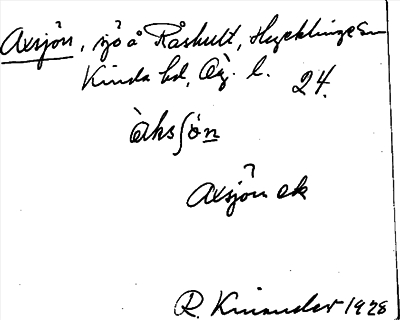 Axsjön, sjö å Råshult, Hycklinge sn
Kinda hd, Ög. l. 24.
àksʃö̀n
Axsjön ek
R. Kinander 1928